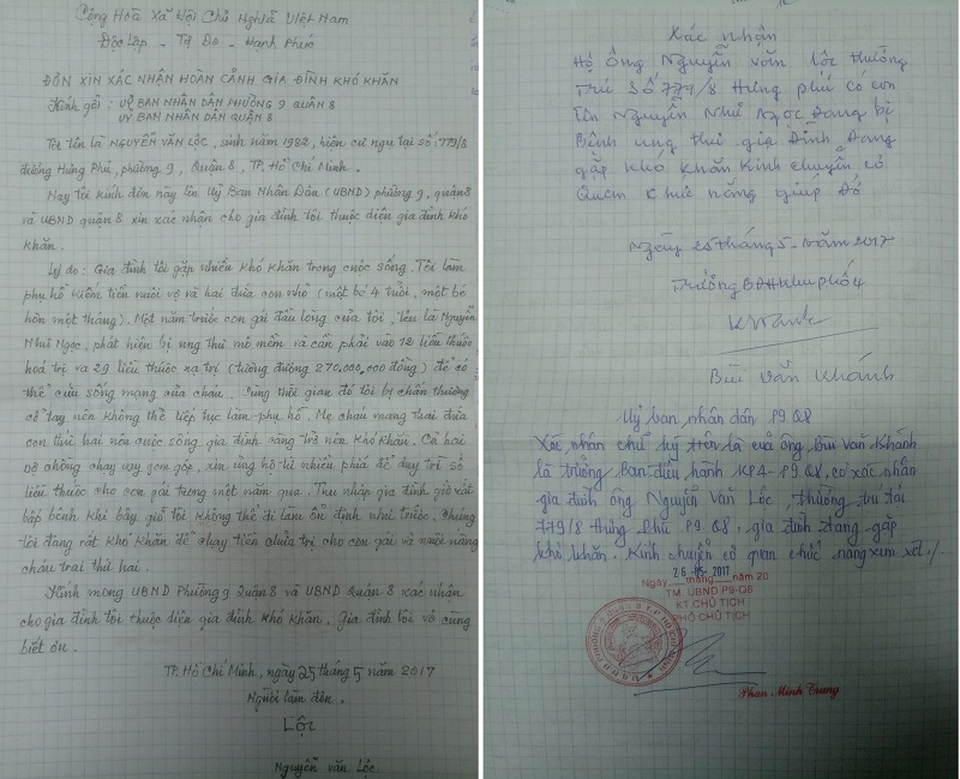 Cộng Hoà Xã Hội Chủ Nghĩa Việt Nam
Độc Lập - Tự Do - Hạnh Phúc
ĐƠN XIN XÁC NHẬN HOÀN CẢNH GIA ĐÌNH KHÓ KHĂN
Kính gởi : UỶ BAN NHÂN DÂN PHƯỜNG 9 QUẬN 8
UỶ BAN NHÂN DÂN QUẬN 8
Tôi tên là NGUYỄN VĂN LỘC, sinh năm 1982, hiện cư ngụ tại số : 779/8
đường Hưng Phú, phường 9, Quận 8, TP. Hồ Chí Minh.
Nay tôi kính đơn này lên Uỷ Ban Nhân Dân (UBND) phường 9, quận 8
và UBND quận 8 xin xác nhận cho gia đình tôi thuộc diện gia đình khó
khăn.
Lý do : Gia đình tôi gặp nhiều khó khăn trong cuộc sống. Tôi làm
phụ hồ kiếm tiền nuôi vợ và hai đứa con nhỏ (một bé 4 tuổi, một bé
hơn một tháng). Một năm trước con gái đầu lòng của tôi, tên là Nguyễn
Như Ngọc, phát hiện bị ung thư mô mềm và cần phải vào 12 liều thuốc
hoá trị và 29 liều thuốc xạ trị (tương đương 270.000.000 đồng) để có
thể cứu sống mạng của cháu. Cùng thời gian đó tôi bị chấn thương
cổ tay nên không thể tiếp tục làm phụ hồ. Mẹ cháu mang thai đứa
con thứ hai nên cuộc sống gia đình càng trở nên khó khăn. Cả hai
vợ chồng chạy vạy gom góp, xin ủng hộ từ nhiều phía để duy trì số
liều thuốc cho con gái trong một năm qua. Thu nhập gia đình giờ rất
bấp bênh khi bây giờ tôi không thể đi làm ổn định như trước. Chúng
tôi đang rất khó khăn để chạy tiền chữa trị cho con gái và nuôi nấng
cháu trai thứ hai.
Kính mong UBND Phường 9 Quận 8 và UBND Quận 8 xác nhận
cho gia đình tôi thuộc diện gia đình khó khăn. Gia đình tôi vô cùng
biết ơn.
TP. Hồ Chí Minh, ngày 25 tháng 5 năm 2017
Người làm đơn.
Lộc
Nguyễn Văn Lộc
Xác nhận
Hộ Ông Nguyễn Văn Lộc thường
Trú Số 779/8 Hưng phú có con
Tên Nguyễn Như Ngọc Đang bị
Bệnh ung thư gia Đình Đang
gặp khó khăn Kính chuyển cơ
Quan chức năng giúp Đỡ
Ngày 25 tháng 5 - năm 2017
Trưởng BĐH khu phố 4
Bùi Văn Khánh
Uỷ ban nhân dân P9 Q8
Xác nhận chữ ký trên là của ông Bùi Văn Khánh
là trưởng ban điều hành KP4 - P9 Q8, có xác nhận
gia đình ông Nguyễn Văn Lộc, thường trú tại
779/8 Hưng Phú P9 Q8, gia đình đang gặp
khó khăn. Kính chuyển cơ quan chức năng xem xét./.
26 -05- 2017
Ngày tháng năm 20
TM. UBND P9-Q8
KT.CHỦ TỊCH
PHÓ CHỦ TỊCH
Phan Minh Trung